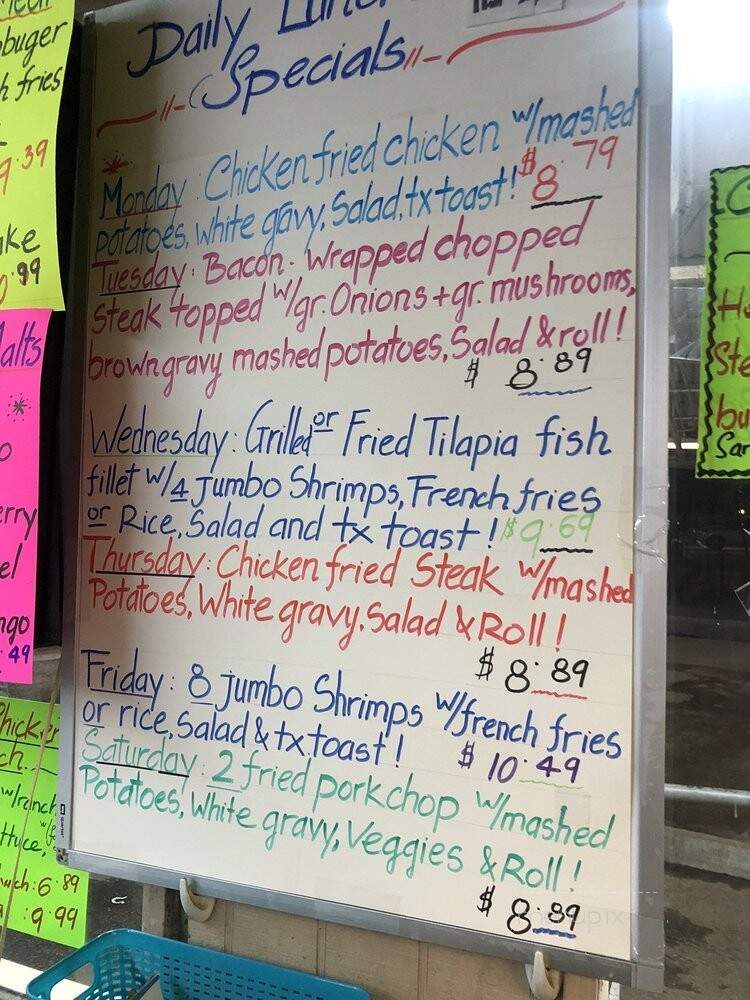 Daily
Specials
* Monday: Chicken fried chicken w/mashed
potatoes, white gravy, Salad, tx toast! $8.79
Tuesday: Bacon-Wrapped chopped
Steak topped w/gr. Onions + gr. mushrooms,
brown gravy mashed potatoes, Salad & roll!
$ 8.89
Wednesday: Grilled or Fried Tilapia fish
fillet w/4 Jumbo Shrimps, French fries
or Rice, Salad and tx toast! $9.69
Thursday: Chicken fried Steak w/mashed
Potatoes, White gravy, Salad & Roll!
$ 8.89
Friday: 8 jumbo Shrimps w/french fries
or rice, Salad & tx toast! $ 10.49
Saturday: 2 fried porkchop w/mashed
Potatoes, White gravy, Veggies & Roll!
$ 8.89
fries
9.39
.99
*
.49
w/ranch
wich: 6.89
: 9.99